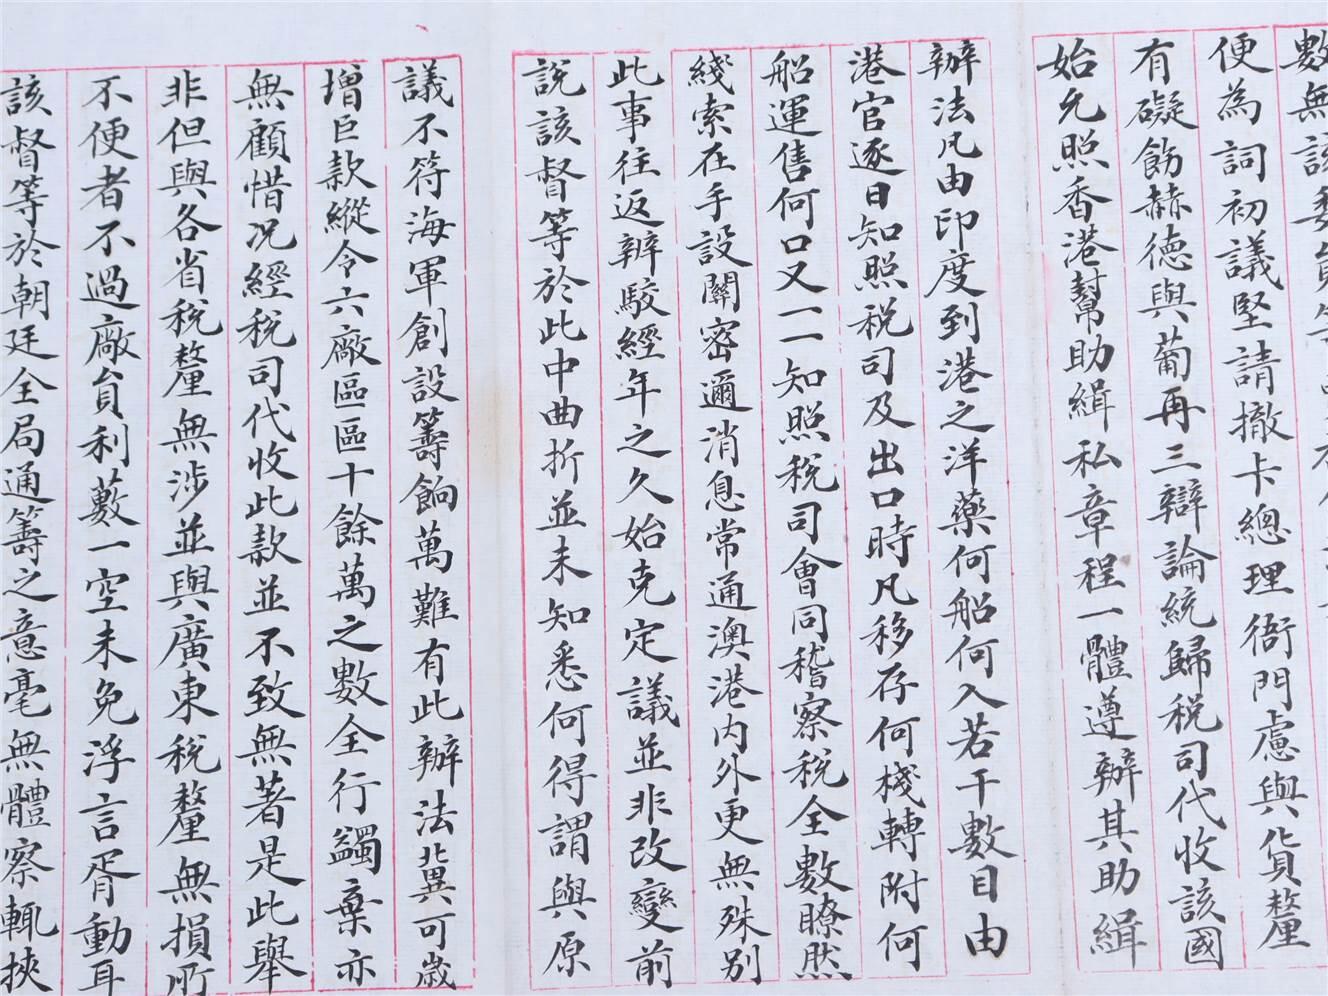 數無該委員等
便為詞初議堅請撤卡總理衙門慮與貨釐
有礙飭赫德與葡再三辯論統歸税司代收該國
始允照香港幫助緝私章程一體遵辦其助緝
辦法凡由印度到港之洋藥何船何入若干數目由
港官逐日知照税司及出口時凡移存何棧轉附何
船運售何口又一一知照税司會同稽察税全數瞭然
綫索在手設關密邇消息常通澳港内外更無殊别
此事往返辨駮經年之久始克定議並非改變前
說該督等於此中曲折並未知悉何得謂與原
議不符海軍創設籌餉萬難有此辦法冀可歲
增巨款縱令六廠區區十餘萬之數全行蠲棄亦
無顧惜况經税司代收此款並不致無著是此舉
非但與各省税釐無涉並與廣東税釐無損所
不便者不過廠員利藪一空未免浮言胥動耳
該督等於朝廷全局通籌之意毫無體察輒挾